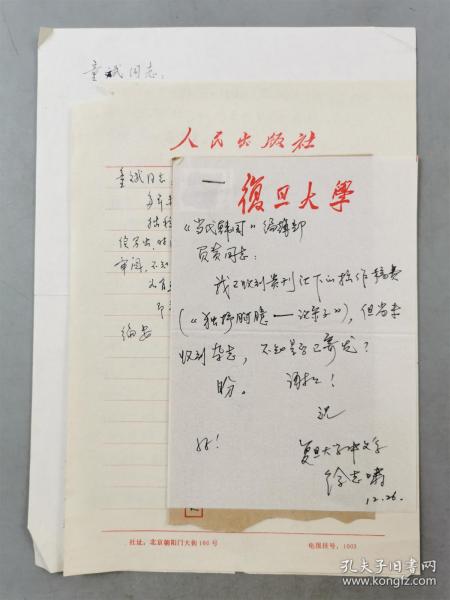 童斌同志：
人民出版社
童斌同志
审阅，不知
编安
復旦大學
《当代韩国》编辑部
负责同志：
我已收到贵刊汇下的拙作稿费
（《独抒胸臆——论李
》），但尚未
收到杂志，不知是否已寄发？
盼。谢谢！
祝
好！
复旦大学中文系
徐志啸
12.26.
社址：北京朝阳门大街166号
电报挂号：1003
孔夫子旧书网